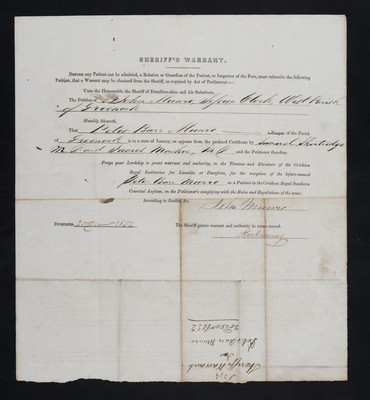 SHERIFF'S WARRANT.
BEFORE any Patient can be admitted, a Relation or Guardian of the Patient, or Inspector of the Poor, must subscribe the following
Petition, that a Warrant may be obtained from the Sheriff, as required by Act of Parliament:—
Unto the Honourable the Sheriff of Dumfries-shire and his Substitute,
The Petition of John Munro, Clerk, West Parish
of Greenock
Humbly Sheweth,
That Peter Barr Munro of the Parish
of Greenock is in a state of lunacy, as appears from the prefixed Certificate by Samuel
M.D. and and the Petitioner therefore
Prays your Lordship to grant warrant and authority, to the Trustees and Directors of the Crichton
Royal Institution for Lunatics at Dumfries, for the reception of the before-named
Peter Barr Munro, as a Patient in the Crichton Royal Southern
Counties' Asylum, on the Petitioner's complying with the Rules and Regulations of the same.
According to Justice, &c.
John Munro
DUMFRIES, 1852 The Sheriff grants warrant and authority in terms craved.
Sheriff's Warrant
for
Peter Barr Munro
1852